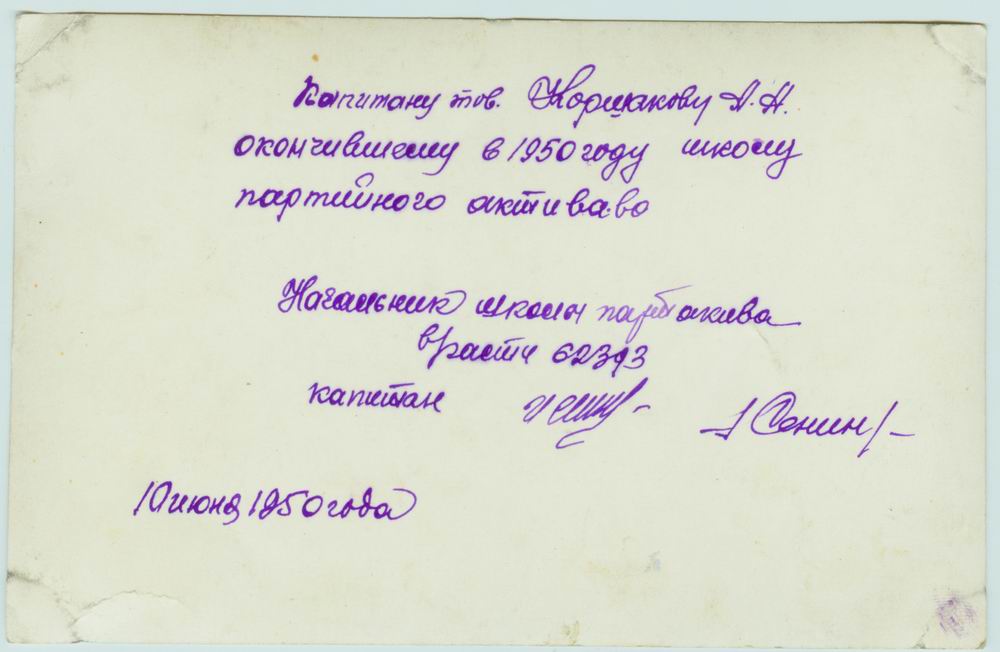 Капитану тов. Коршакову А.А.
окончившему в 1950 году школу
партийного актива
Начальник школы партактива
в/части 62393
капитан /Сенин/
10 июня 1950 года